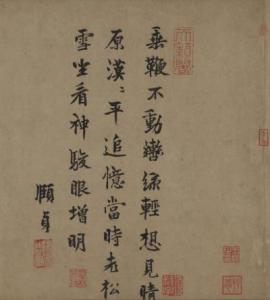 垂鞭不動轡絲輕想見晴
原漠〻平追憶當時老松
雪坐看神駿眼增明
顧貞
天籟閣